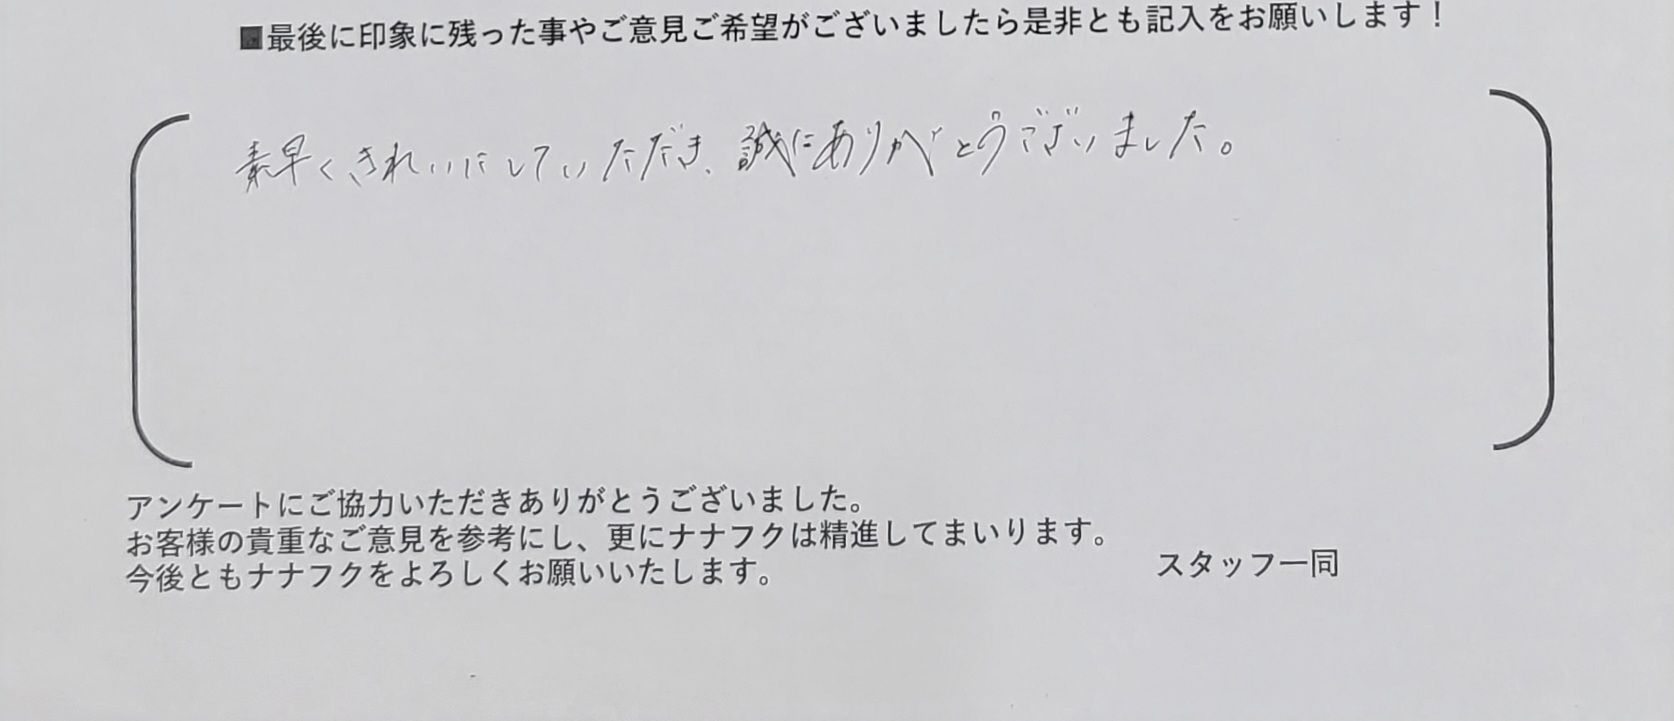 ■最後に印象に残った事やご意見ご希望がございましたら是非とも記入をお願いします！
素早くきれいにしていただき、誠にありがとうございました。
アンケートにご協力いただきありがとうございました。
お客様の貴重なご意見を参考にし、更にナナフクは精進してまいります。
今後ともナナフクをよろしくお願いいたします。
スタッフ一同